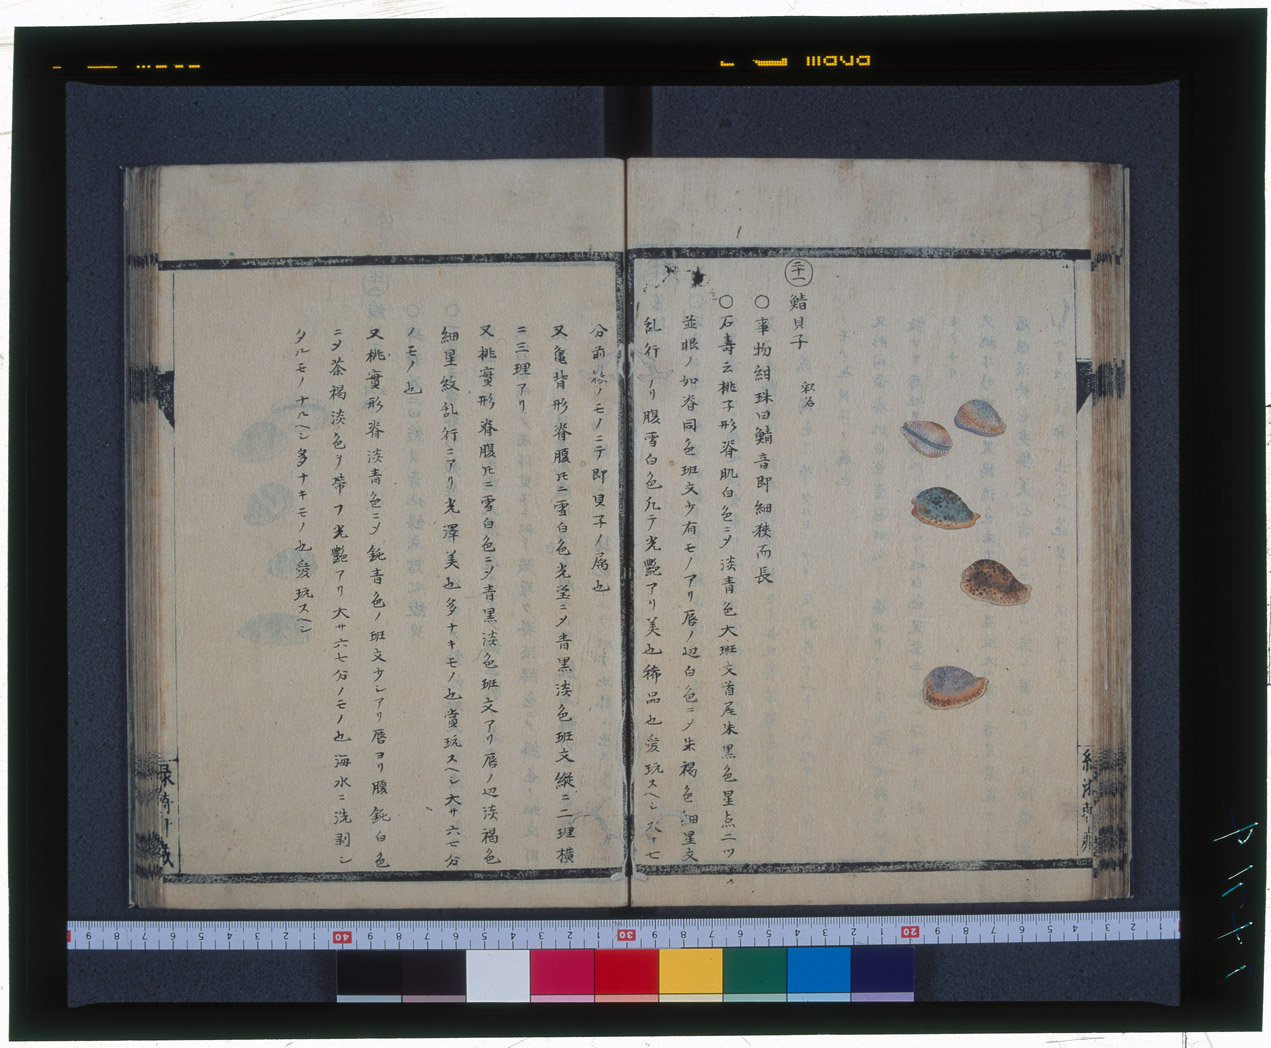 二十一
鯌貝子 釈名
〇事物紺珠曰鯌音即細狭而長
〇石壽云桃子形脊肌白色ニメ淡青色大班文首尾朱黒色星点二ツ
並眼ノ如脊同色班文少有モノアリ唇ノ辺白色ニメ朱褐色細星文
乱行ノリ腹雪白色凡テ光艶アリ美也稀品也愛玩スヘシ大サ七
分前ノモノニテ即貝子ノ属也
又亀背形脊腹圧ニ雪白色光瑩ニメ青黒淡色班文縦ニ二理横
ニ三理アリ
又桃實形脊腹圧ニ雪白色ニメ青黒淡色班文アリ唇ノ辺淡褐色
細星紋乱行ニアリ光澤美也多ナキモノ也賞玩スヘシ大サ六七分
ノモノ也
又桃實形脊淡青色ニメ鈍青色ノ班文少シアリ唇ヨリ腹鈍白色
ニメ茶褐淡色ヲ帯フ光艶アリ大サ六七分ノモノ也海水ニ洗剥シ
タルモノナルヘシ多ナキモノ也愛玩スヘシ
maya
9 8 7 6 5 4 3 2 1 40 9 8 7 6 5 4 3 2 1 30 9 8 7 6 5 4 3 2 1 20 9 8 7 6 5 4 3 2 1